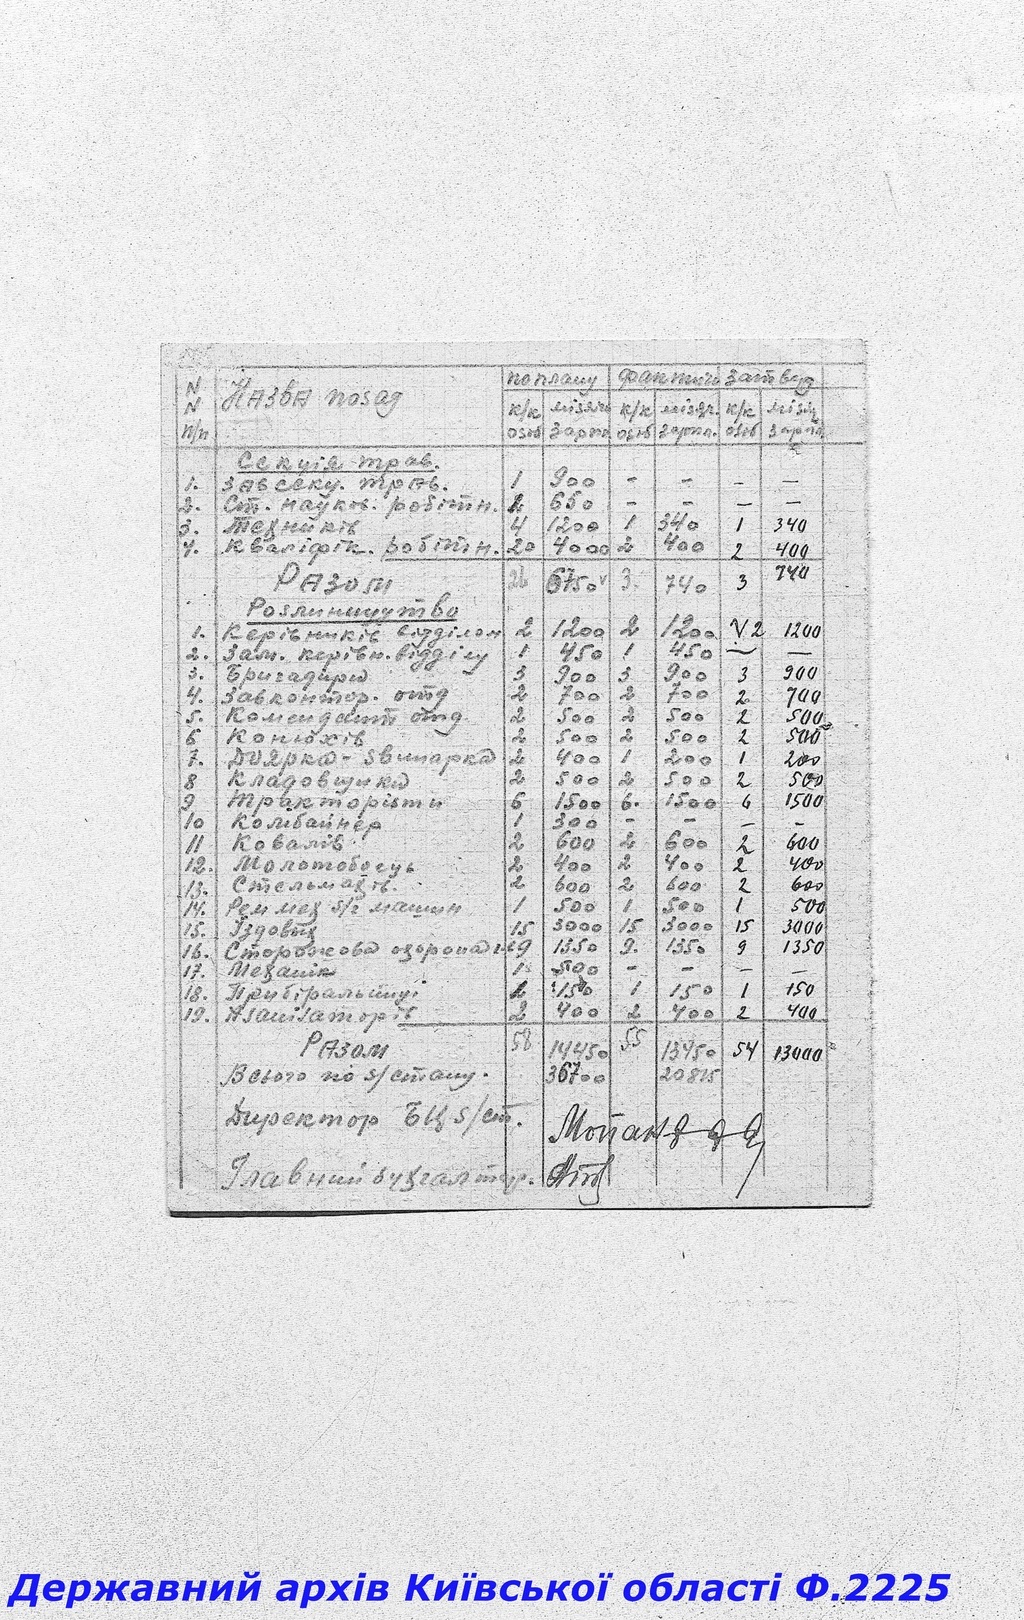 N N п/п Назва посад по плану фактичн. затвуд
к/к осіб місячн зарпл. к/к осіб місяч. зарпл. к/к осіб місяч зарпл.
Секція трав.
1. Зав секц. трав. 1 900 - - - -
2. Ст. науков. робітн. 1 650 - - - -
3. Техників 4 1200 1 340 1 340
4. Кваліфік. робітн. 20 4000 2 400 2 400
Разом 26 6750 3. 740 3 740
Рослинництво
1. Керівників відділом 2 1200 2 1200 V 2 1200
2. Зам. керівн. відділу 1 450 1 450 — —
3. Бригадири 3 900 3 900 3 900
4. Завконтор. отд 2 700 2 700 2 700
5. Комендант отд 2 500 2 500 2 500
6 Конюхів 2 500 2 500 2 500
7. Доярка-sвинарка 2 400 1 200 1 200
8 Кладовщики 2 500 2 500 2 500
9 Трактористи 6 1500 6. 1500 6 1500
10 Комбайнер 1 300 - - - -
11 Ковалів 2 600 2 600 2 600
12. Молотобоець 2 400 2 400 2 400
13. Стельмахів. 2 600 2 600 2 600
14. Рем мех s/г машин 1 500 1. 500 1 500
15. Їздовых 15 3000 15 3000 15 3000
16. Сторожова охорона 9 1350 9. 1350 9 1350
17. Механік 1 500 - - - -
18. Прибіральниці 1 150 1 150 1 150
19. Аsаніsаторів 2 400 2 400 2 400
Разом 58 14450 55 13450 54 13000
Всього по s/стану. 36700 20815
Директор БЦ s/ст.
Главний бухгалтер.
Державний архів Київської області Ф.2225